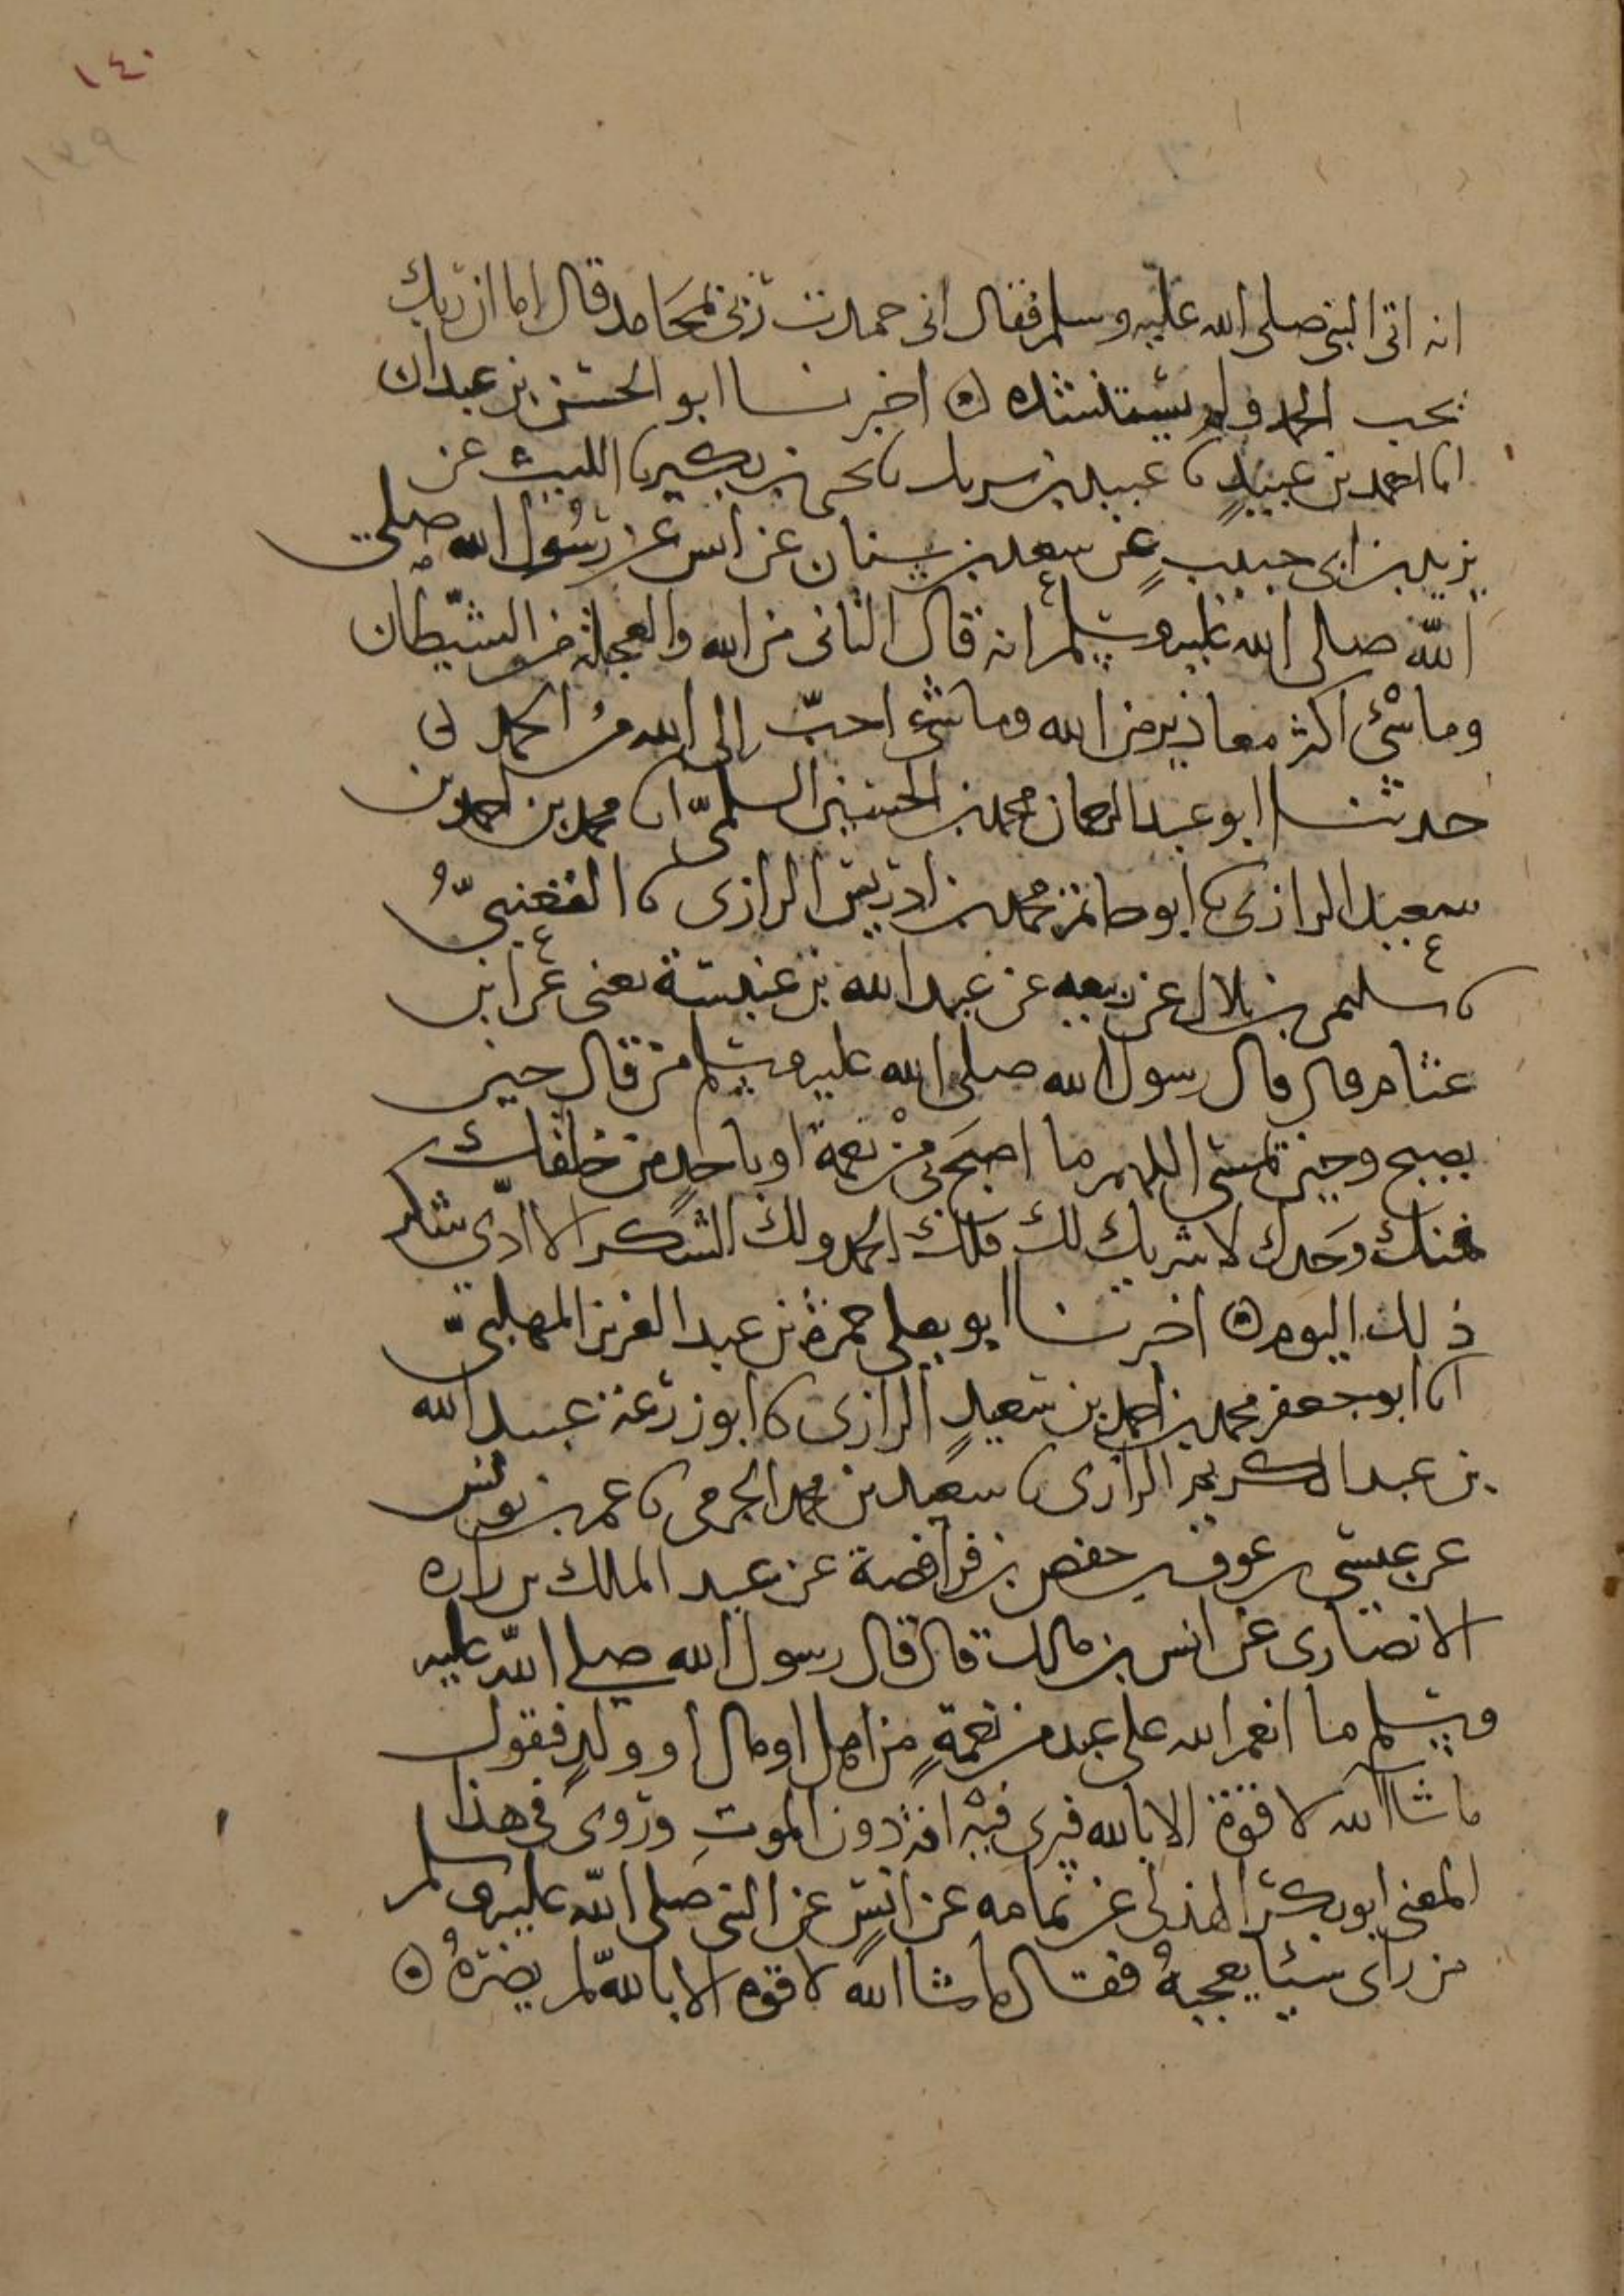 ١٤٠
١٣٩
انه اتى النبي صلى الله عليه وسلم فقال انى حمدت ربى بمحامد قال اما ان ربك
يحب الحمد ولم يستنشده ه اخبرنا ابو الحسن بن عبدان
انا احمد بن عبيد نا عبيد بن شريك نا يحيى بن بكير نا الليث عن
يزيد بن ابى حبيب عن سعد بن سنان عن انس عن رسول الله صلى
الله صلى الله عليه وسلم انه قال التانى من الله والعجلة من الشيطان
وما شئ اكثر معاذير من الله وما شئ احب الى الله من الحمد ه
حدثنا ابو عبد الرحمان محمد بن الحسين السلمي انا محمد بن احمد بن
سعيد الرازى نا ابو حاتم محمد بن ادريس الرازى نا القعنبي
نا سليمن بن بلال عن ربيعه عن عبد الله بن عنبسة يعنى عن ابن
غنام قال قال رسول الله صلى الله عليه وسلم من قال حين
يصبح وحين يمسى اللهم ما اصبح بى من نعمة او باحد من خلقك
فمنك وحدك لا شريك لك فلك الحمد ولك الشكر الا ادى شكر
ذلك اليوم ه اخبرنا ابو يعلى حمزة بن عبد العزيز المهلبي
انا ابو جعفر محمد بن احمد بن سعيد الرازى نا ابو زرعة عبيد الله
بن عبد الكريم الرازى نا سعيد بن محمد الجرمى نا عمر بن يونس
عن عيسى بن عون بن حفص بن فرافصة عن عبد الملك بن زراره
الانصارى عن انس بن مالك قال قال رسول الله صلى الله عليه
وسلم ما انعم الله على عبد من نعمة من اهل او مال او ولد فيقول
ما شا الله لا قوة الا بالله فيرى فيه افة دون الموت وروى فى هذا
المعنى ابو بكر الهذلى عن ثمامه عن انس عن النبي صلى الله عليه وسلم
من راى شيئا يعجبه فقال ما شا الله لا قوة الا بالله لم يضره ه